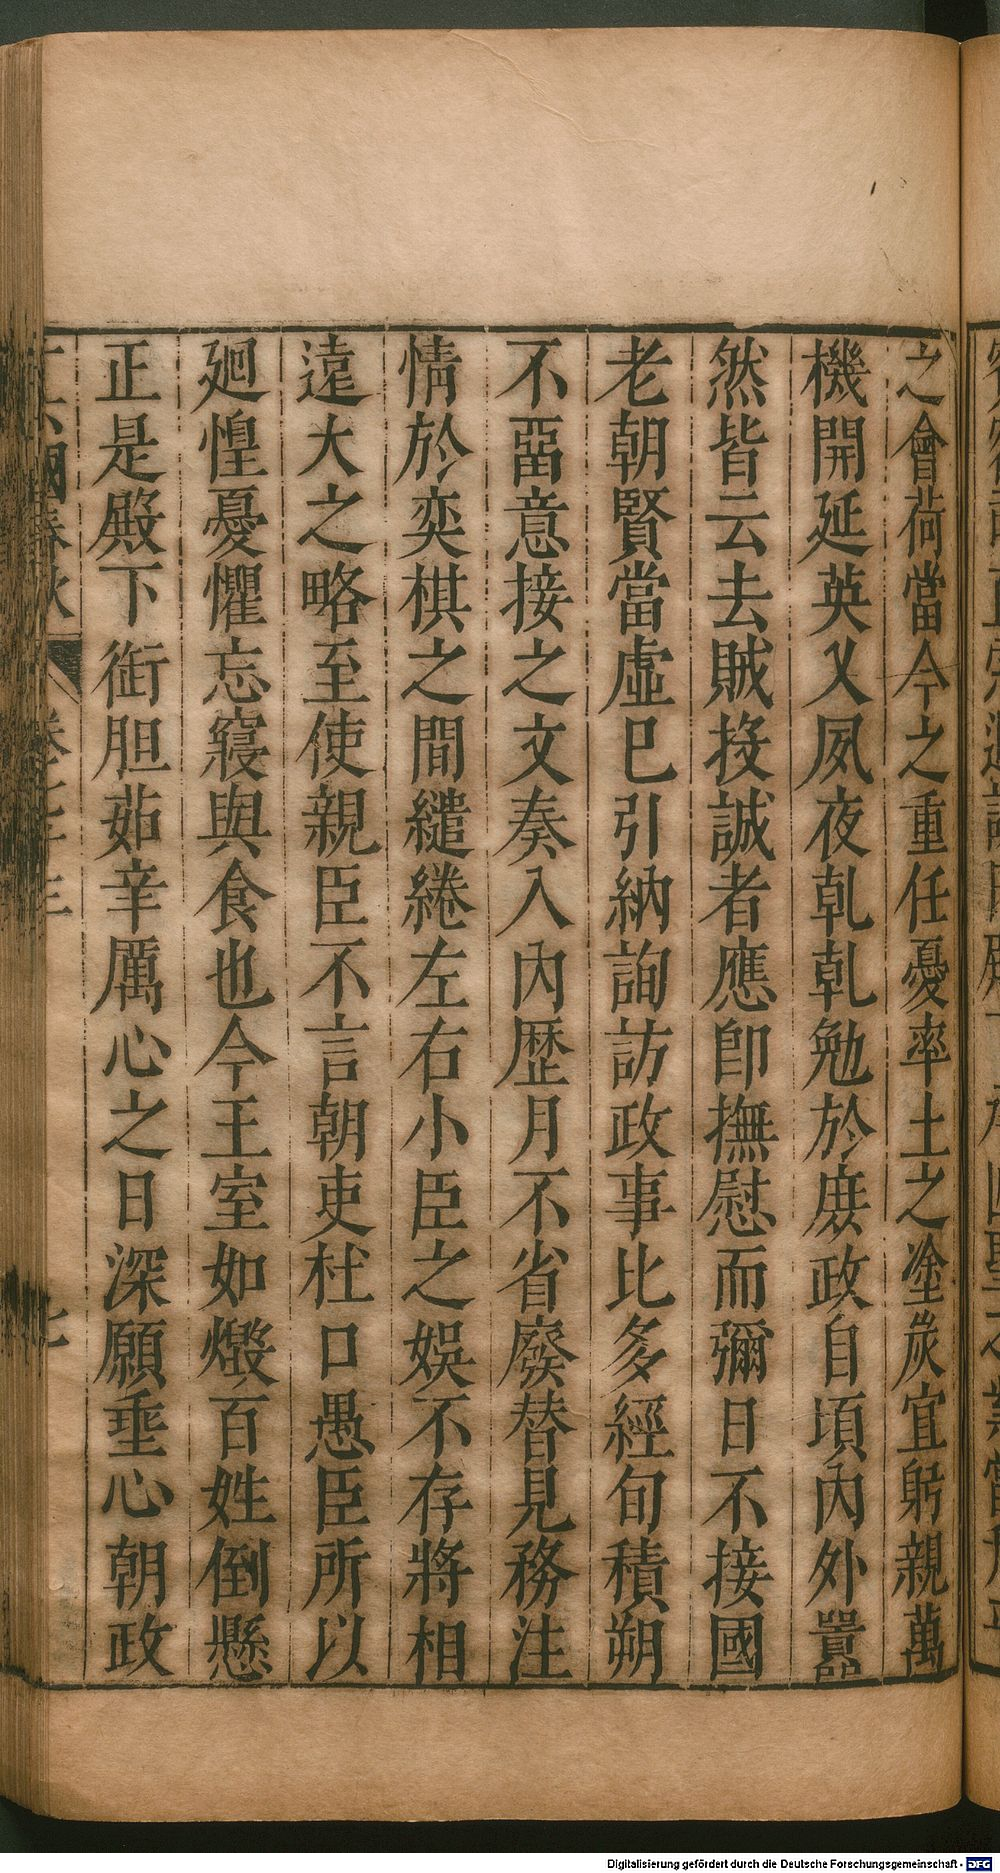 之會荷當今之重任憂率土之塗炭宜躬親萬
機開延英乂夙夜乹乹勉於庶政自頃內外囂
然皆云去賊投誠者應卽撫慰而彌日不接國
老朝賢當虛巳引納詢訪政事比多經旬積朔
不畱意接之文奏入內歷月不省廢替見務注
情於奕棋之間繾綣左右小臣之娛不存將相
遠大之略至使親臣不言朝吏杜口愚臣所以
廻惶憂懼忘寢與食也今王室如燬百姓倒懸
正是殿下銜胆茹辛厲心之日深願垂心朝政
國春秋 卷七十三 七
Digitalisierung gefördert durch die Deutsche Forschungsgemeinschaft - DFG